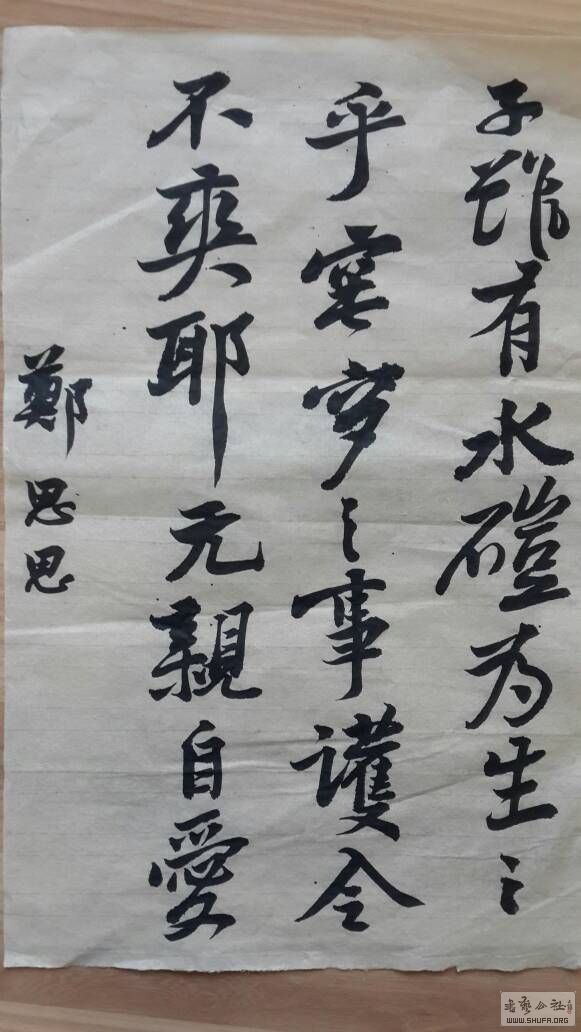 子雖有水磑为生之
乎窀穸之事護令
不爽耶元親自愛
鄭思思
书艺公社
WWW.SHUFA.ORG